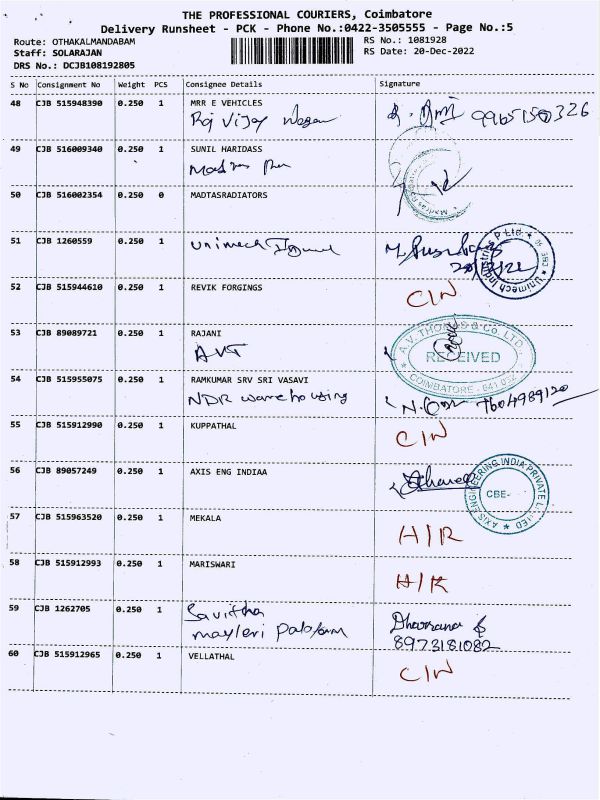 THE PROFESSIONAL COURIERS, Coimbatore
Delivery Runsheet - PCK - Phone No.:0422-3505555 - Page No.:5
Route: OTHAKALMANDABAM
RS No.: 1081928
Staff: SOLARAJAN
RS Date: 20-Dec-2022
DRS No.: DCJB108192805
S No Consignment No Weight PCS Consignee Details Signature
48 CJB 515948390 0.250 1 MRR E VEHICLES
Raj Vijay 9965150326
49 CJB 516009340 0.250 1 SUNIL HARIDASS
50 CJB 516002354 0.250 0 MADTASRADIATORS
51 CJB 1260559 0.250 1 Unimech
Unimech Industries P Ltd. * CBE
52 CJB 515944610 0.250 1 REVIK FORGINGS
C/N
53 CJB 89089721 0.250 1 RAJANI
AVT
A.V. THOMAS & Co. LTD.,
RECEIVED
COIMBATORE - 641 032
54 CJB 515955075 0.250 1 RAMKUMAR SRV SRI VASAVI
NDR warehousing 7604989120
55 CJB 515912990 0.250 1 KUPPATHAL
C/N
56 CJB 89057249 0.250 1 AXIS ENG INDIAA
AXIS ENGINEERING INDIA PRIVATE LIMITED
CBE-
57 CJB 515963520 0.250 1 MEKALA
H/R
58 CJB 515912993 0.250 1 MARISWARI
H/R
59 CJB 1262705 0.250 1 Savitha
8973181082
60 CJB 515912965 0.250 1 VELLATHAL
C/N